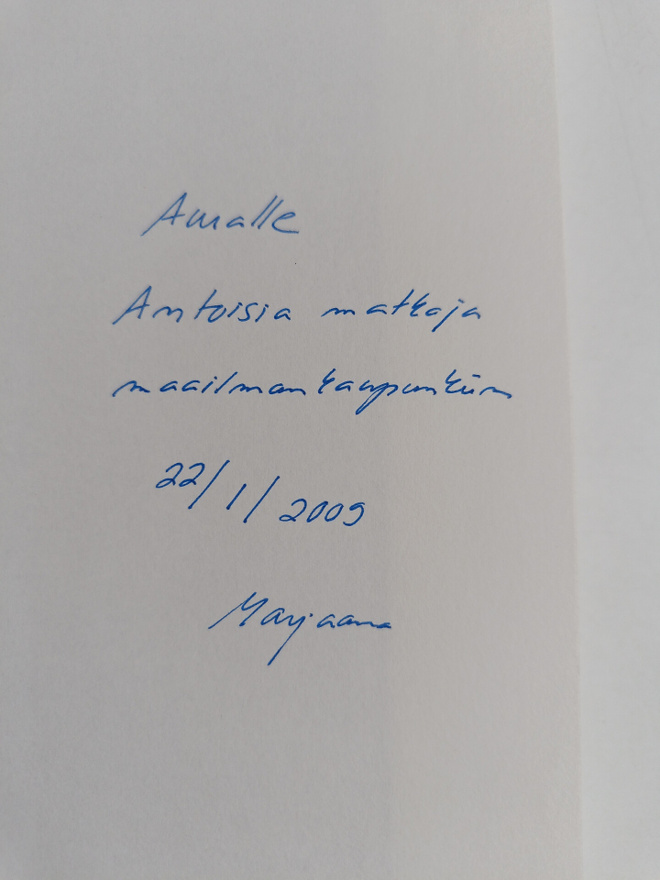 Aualle
Antoisia matkoja
maailmankaupunkiin
22/1/2009
Marjaana